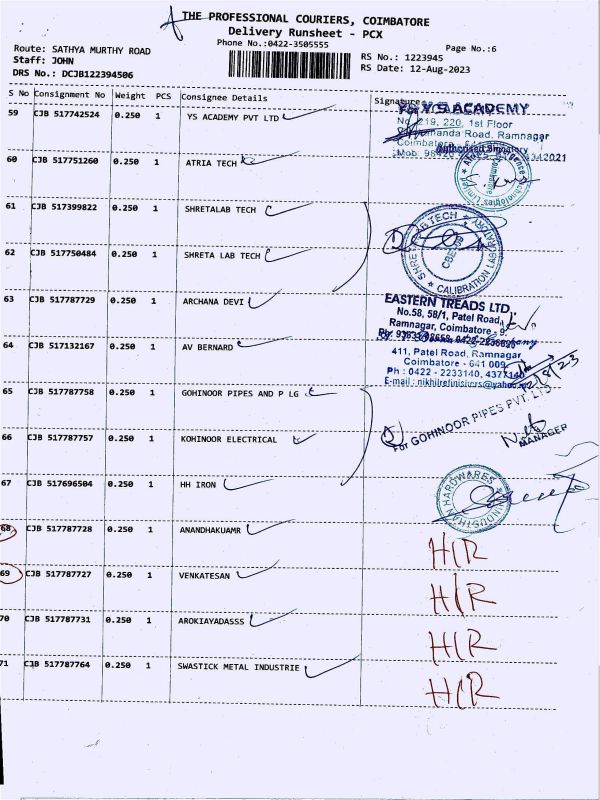 THE PROFESSIONAL COURIERS, COIMBATORE
Delivery Runsheet - PCX
Phone No.:0422-3505555
Page No.:6
Route: SATHYA MURTHY ROAD
Staff: JOHN
DRS No.: DCJB122394506
RS No.: 1223945
RS Date: 12-Aug-2023
S No Consignment No Weight PCS Consignee Details Signature
59 CJB 517742524 0.250 1 YS ACADEMY PVT LTD
Y S ACADEMY
No. 219, 220, 1st Floor
Road, Ramnagar
Coimbatore
Authorised Signatory
60 CJB 517751260 0.250 1 ATRIA TECH
61 CJB 517399822 0.250 1 SHRETALAB TECH
62 CJB 517750484 0.250 1 SHRETA LAB TECH
CALIBRATION LABORATORY
CBE
63 CJB 517787729 0.250 1 ARCHANA DEVI
EASTERN TREADS LTD.,
No.58, 58/1, Patel Road,
Ramnagar, Coimbatore - 9.
64 CJB 517132167 0.250 1 AV BERNARD
411, Patel Road, Ramnagar
Coimbatore - 641 009
Ph : 0422 - 2233140,
E-mail : nikhilrefinishers@yahoo
12/8/23
65 CJB 517787758 0.250 1 GOHINOOR PIPES AND P LG
For GOHINOOR PIPES PVT. LTD
MANAGER
66 CJB 517787757 0.250 1 KOHINOOR ELECTRICAL
67 CJB 517696504 0.250 1 HH IRON
HINDUSTHAN HARDWARES
68 CJB 517787728 0.250 1 ANANDHAKUAMR
H/R
69 CJB 517787727 0.250 1 VENKATESAN
H/R
70 CJB 517787731 0.250 1 AROKIAYADASSS
H/R
71 CJB 517787764 0.250 1 SWASTICK METAL INDUSTRIE
H/R